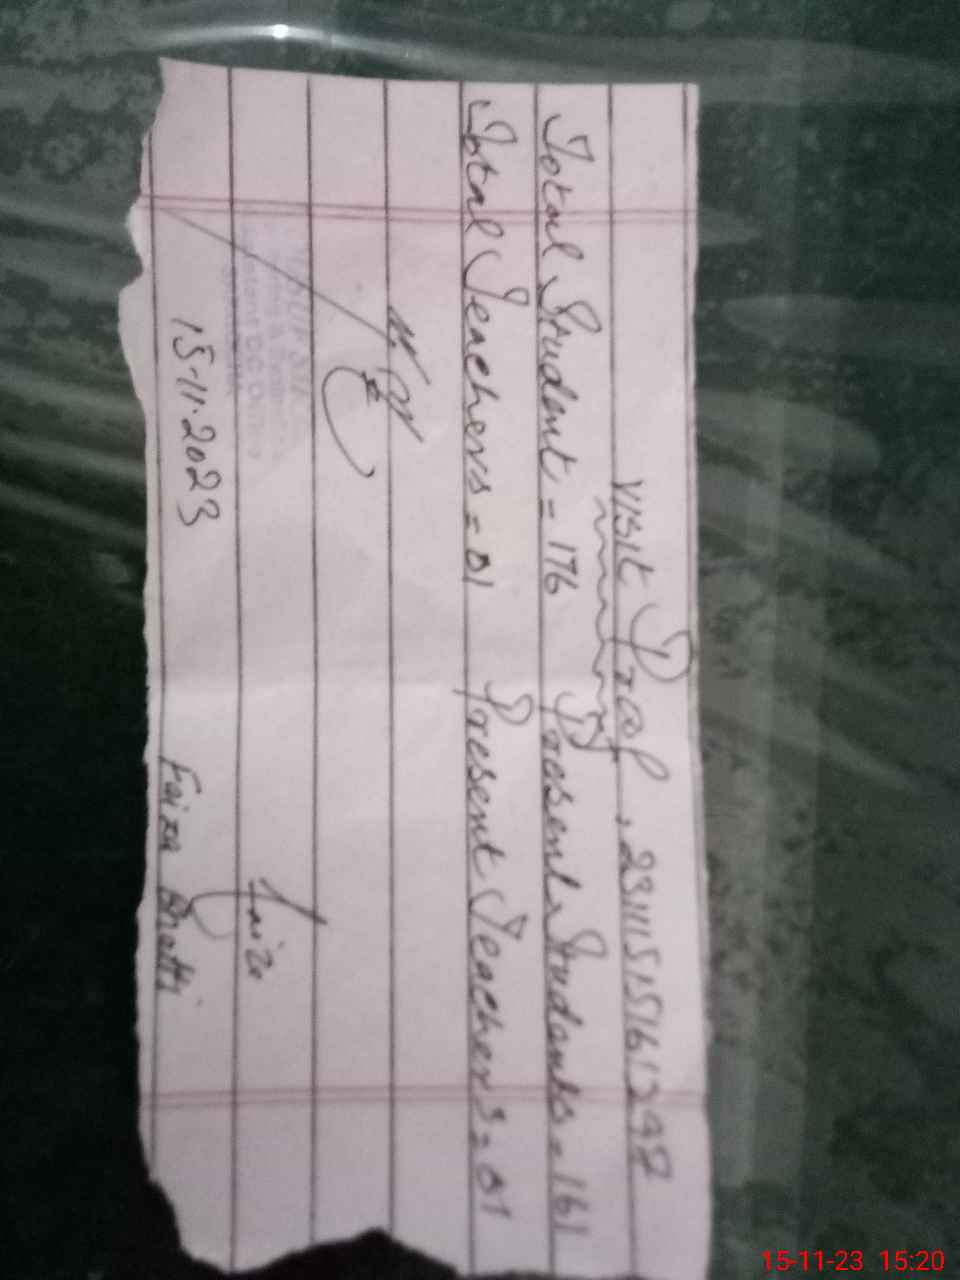 Visit Proof, 231115151613297
Total Student = 176 Present Students = 161
Total Teachers = 01 Present Teachers = 01
Faiza
15-11-2023 Faiza Bhatti
15-11-23 15:20